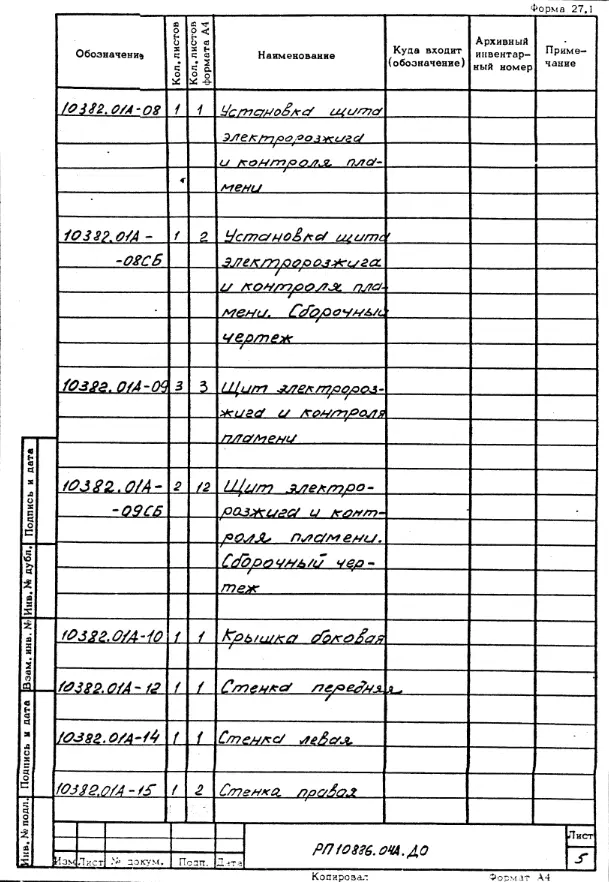 Форма 27.1
Обозначение
Кол. листов
Кол. листов формата А4
Наименование
Куда входит (обозначение)
Архивный инвентарный номер
Примечание
10382.01А-08 1 1 Установка щита
электророзжига
и контроля пла-
мени
10382.01А- 1 2 Установка щита
-08СБ электророзжига
и контроля пла-
мени. Сборочный
чертеж
10382.01А-09 3 3 Щит электророз-
жига и контроля
пламени
10382.01А- 2 12 Щит электро-
-09СБ розжига и конт-
роля пламени.
Сборочный чер-
теж
10382.01А-10 1 1 Крышка боковая
10382.01А-12 1 1 Стенка передняя
10382.01А-14 1 1 Стенка левая
10382.01А-15 1 2 Стенка правая
Подпись и дата
Инв. № дубл.
Взам. инв. №
Подпись и дата
Инв. № подл.
Изм Лист № докум. Подп. Дата
РП10836.04А.ДО
Лист
5
Копировал Формат А4